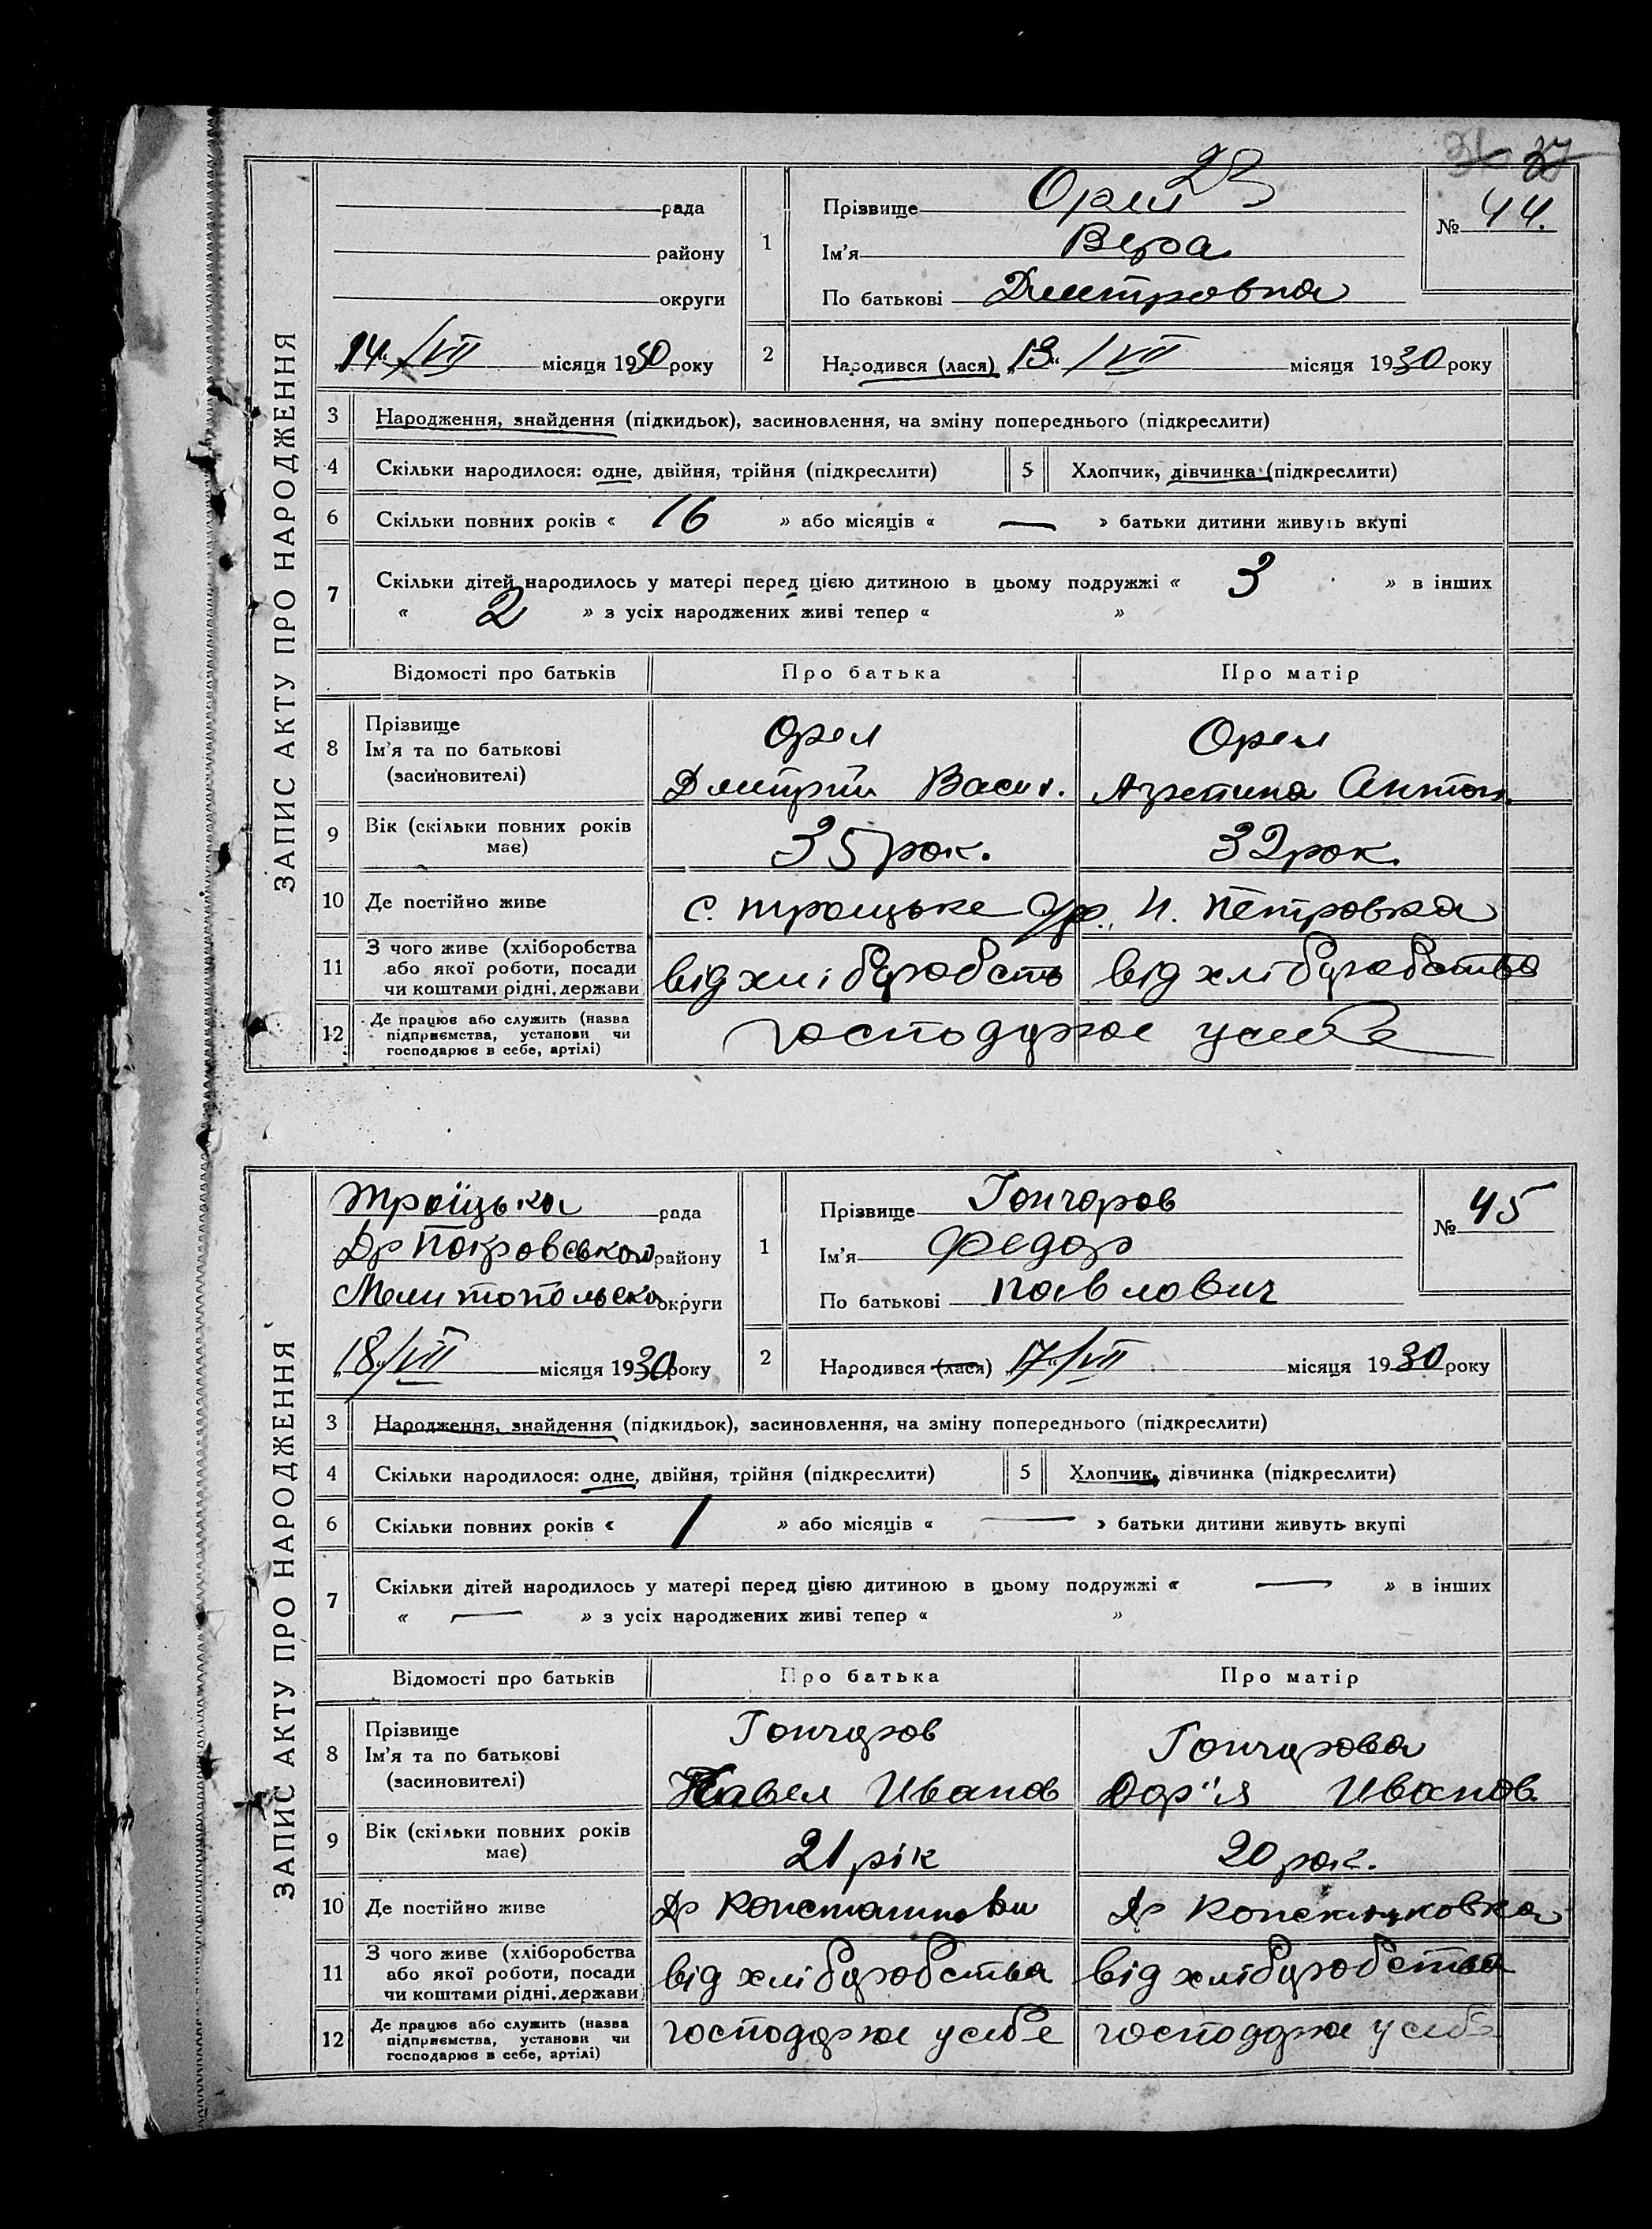 37
23
ЗАПИС АКТУ ПРО НАРОДЖЕННЯ
рада
району
округи
„14“/VII місяця 1930 року
1
Прізвище Орел
Ім'я Вера
По батькові Дмитровна
№ 44.
2
Народився (лася) „13“/VII місяця 1930 року
3 Народження, знайдення (підкидьок), засиновлення, на зміну попереднього (підкреслити)
4 Скільки народилося: одне, двійня, трійня (підкреслити) 5 Хлопчик, дівчинка (підкреслити)
6 Скільки повних років « 16 » або місяців « — » батьки дитини живуть вкупі
7 Скільки дітей народилось у матері перед цією дитиною в цьому подружжі « 3 » в інших
« 2 » з усіх народжених живі тепер « »
Відомості про батьків Про батька Про матір
8 Прізвище
Ім'я та по батькові
(засиновителі)
Орел
Дмитрий Васил.
Орел
Антон.
9 Вік (скільки повних років
має)
35 рок. 32 рок.
10 Де постійно живе с. Троицьке Др. Н. Петровка
11 З чого живе (хліборобства
або якої роботи, посади
чи коштами рідні, держави
від хліборобств від хліборобства
12 Де працює або служить (назва
підприємства, установи чи
господарює в себе, артілі)
господарює усебе
ЗАПИС АКТУ ПРО НАРОДЖЕННЯ
Троїцька рада
Др Покровського району
Мелитопольско округи
„18“/VII місяця 1930 року
1
Прізвище Гончаров
Ім'я Федор
По батькові Павлович
№ 45
2
Народився (лася) „17“/VII місяця 1930 року
3 Народження, знайдення (підкидьок), засиновлення, на зміну попереднього (підкреслити)
4 Скільки народилося: одне, двійня, трійня (підкреслити) 5 Хлопчик, дівчинка (підкреслити)
6 Скільки повних років « 1 » або місяців « — » батьки дитини живуть вкупі
7 Скільки дітей народилось у матері перед цією дитиною в цьому подружжі « — » в інших
« — » з усіх народжених живі тепер « »
Відомості про батьків Про батька Про матір
8 Прізвище
Ім'я та по батькові
(засиновителі)
Гончаров
Павел Иванов
Гончарова
Дар'я Иванов
9 Вік (скільки повних років
має)
21 рік 20 рок.
10 Де постійно живе Др Др
11 З чого живе (хліборобства
або якої роботи, посади
чи коштами рідні, держави
від хліборобства від хліборобства
12 Де працює або служить (назва
підприємства, установи чи
господарює в себе, артілі)
господарює усебе господарює усебе